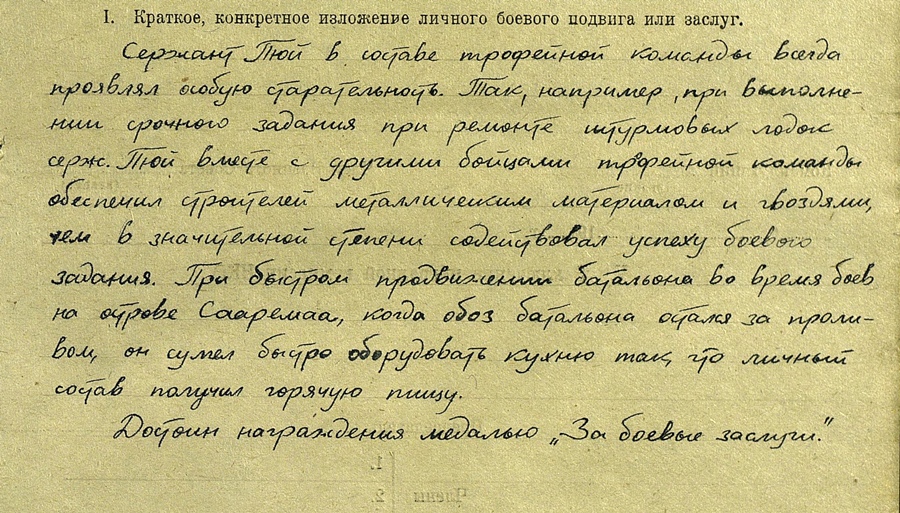 I. Краткое, конкретное изложение личного боевого подвига или заслуг.
Сержант Пюй в составе трофейной команды всегда
проявлял особую старательность. Так, например, при выполне-
нии срочного задания при ремонте штурмовых лодок
серж. Пюй вместе с другими бойцами трофейной команды
обеспечил строителей металлическим материалом и гвоздями,
чем в значительной степени содействовал успеху боевого
задания. При быстром продвижении батальона во время боев
на острове Сааремаа, когда обоз батальона остался за проли-
вом, он сумел быстро оборудовать кухню так, что личный
состав получил горячую пищу.
Достоин награждения медалью „За боевые заслуги."
1.
2.
Члены